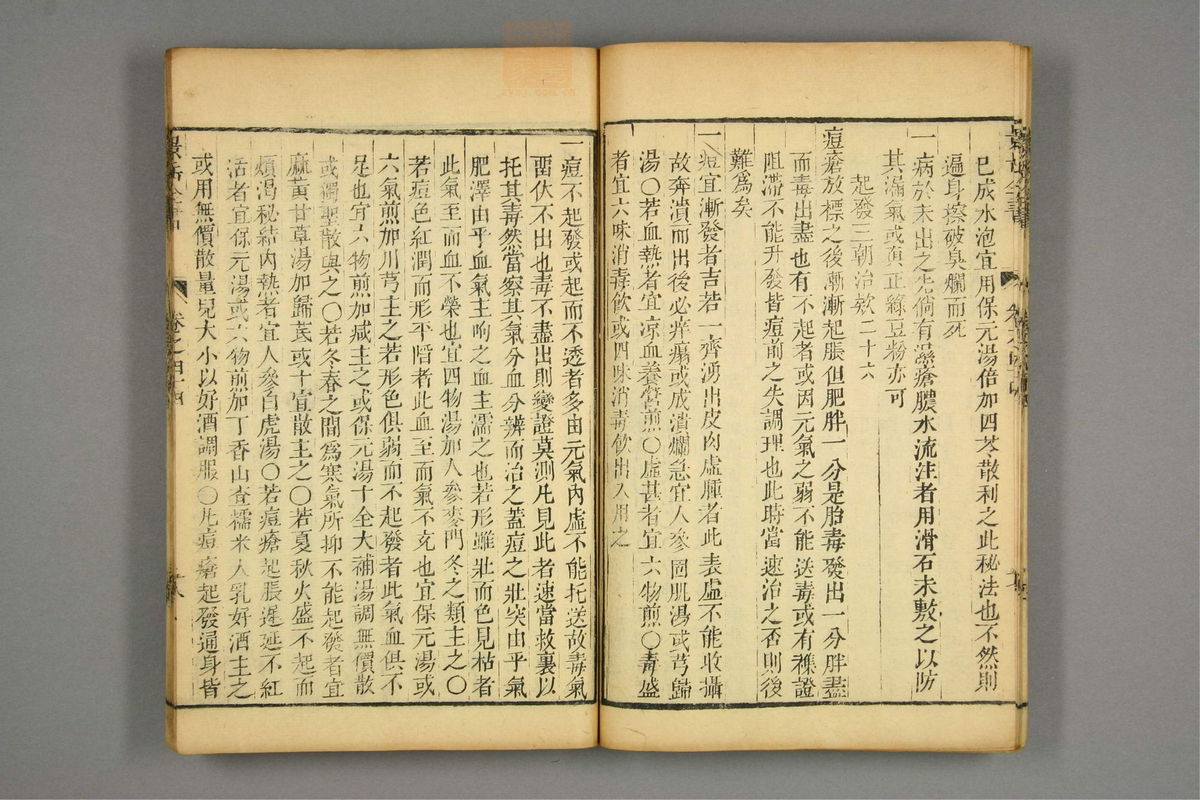 已成水泡宜用保元湯倍加四苓散利之此秘法也不然則
遍身擦破臭爛而死
一病於未出之先倘有濕瘡膿水流注者用滑石末敷之以防
其漏氣或眞正綠豆粉亦可
起發三朝治款二十六
痘瘡放標之後漸漸起脹但肥胖一分是胎毒發出一分胖盡
而毒出盡也有不起者或因元氣之弱不能送毒或有雜證
阻滯不能升發皆痘前之失調理也此時當速治之否則後
難爲矣
一痘宜漸發者吉若一齊湧出皮肉虛腫者此表虛不能收攝
故奔潰而出後必痒塌或成潰爛急宜人參固肌湯或芎歸
湯〇若血熱者宜涼血養營煎〇虛甚者宜六物煎〇毒盛
者宜六味消毒飲或四味消毒飲出入用之
一痘不起發或起而不透者多由元氣內虛不能托送故毒氣
畱伏不出也毒不盡出則變證莫測凡見此者速當救裏以
托其毒然當察其氣分血分辨而治之蓋痘之壯突由乎氣
肥澤由乎血氣主呴之血主濡之也若形雖壯而色見枯者
此氣至而血不榮也宜四物湯加人參麥門冬之類主之〇
若痘色紅潤而形平陷者此血至而氣不充也宜保元湯或
六氣煎加川芎主之若形色俱弱而不起發者此氣血俱不
足也宜六物煎加減主之或保元湯十全大補湯調無價散
或獨聖散與之〇若冬春之間爲寒氣所抑不能起發者宜
麻黃甘草湯加歸芪或十宣散主之〇若夏秋火盛不起而
煩渴秘結內熱者宜人參白虎湯〇若痘瘡起脹遲延不紅
活者宜保元湯或六物煎加丁香山查糯米人乳好酒主之
或用無價散量兒大小以好酒調服〇凡痘瘡起發通身皆
卷之四十四